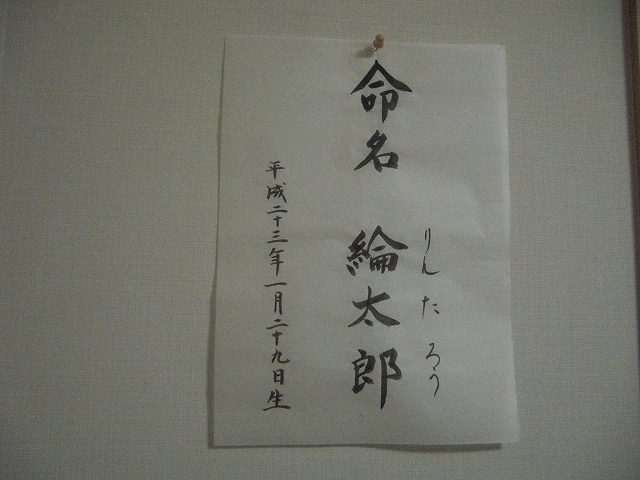 りんたろう
命名 綸太郎
平成二十三年一月二十九日生